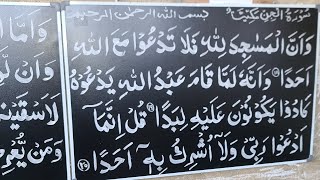 سُوْرَةُ الْجِنِّ مَكِّيَّةٌ بسم الله الرحمٰن الرحيم
وَاَنَّ الْمَسٰجِدَ لِلّٰهِ فَلَا تَدْعُوْا مَعَ اللّٰهِ
اَحَدًا ۝١٨ وَّاَنَّهٗ لَمَّا قَامَ عَبْدُ اللّٰهِ يَدْعُوْهُ
كَادُوْا يَكُوْنُوْنَ عَلَيْهِ لِبَدًا ۝١٩ قُلْ اِنَّمَآ
اَدْعُوْا رَبِّيْ وَلَآ اُشْرِكُ بِهٖٓ اَحَدًا ۝٢٠
وَاَمَّا
وَّاَنْ لَّوِ
لَاَسْقَيْنٰ
وَمَنْ يُّعْرِ